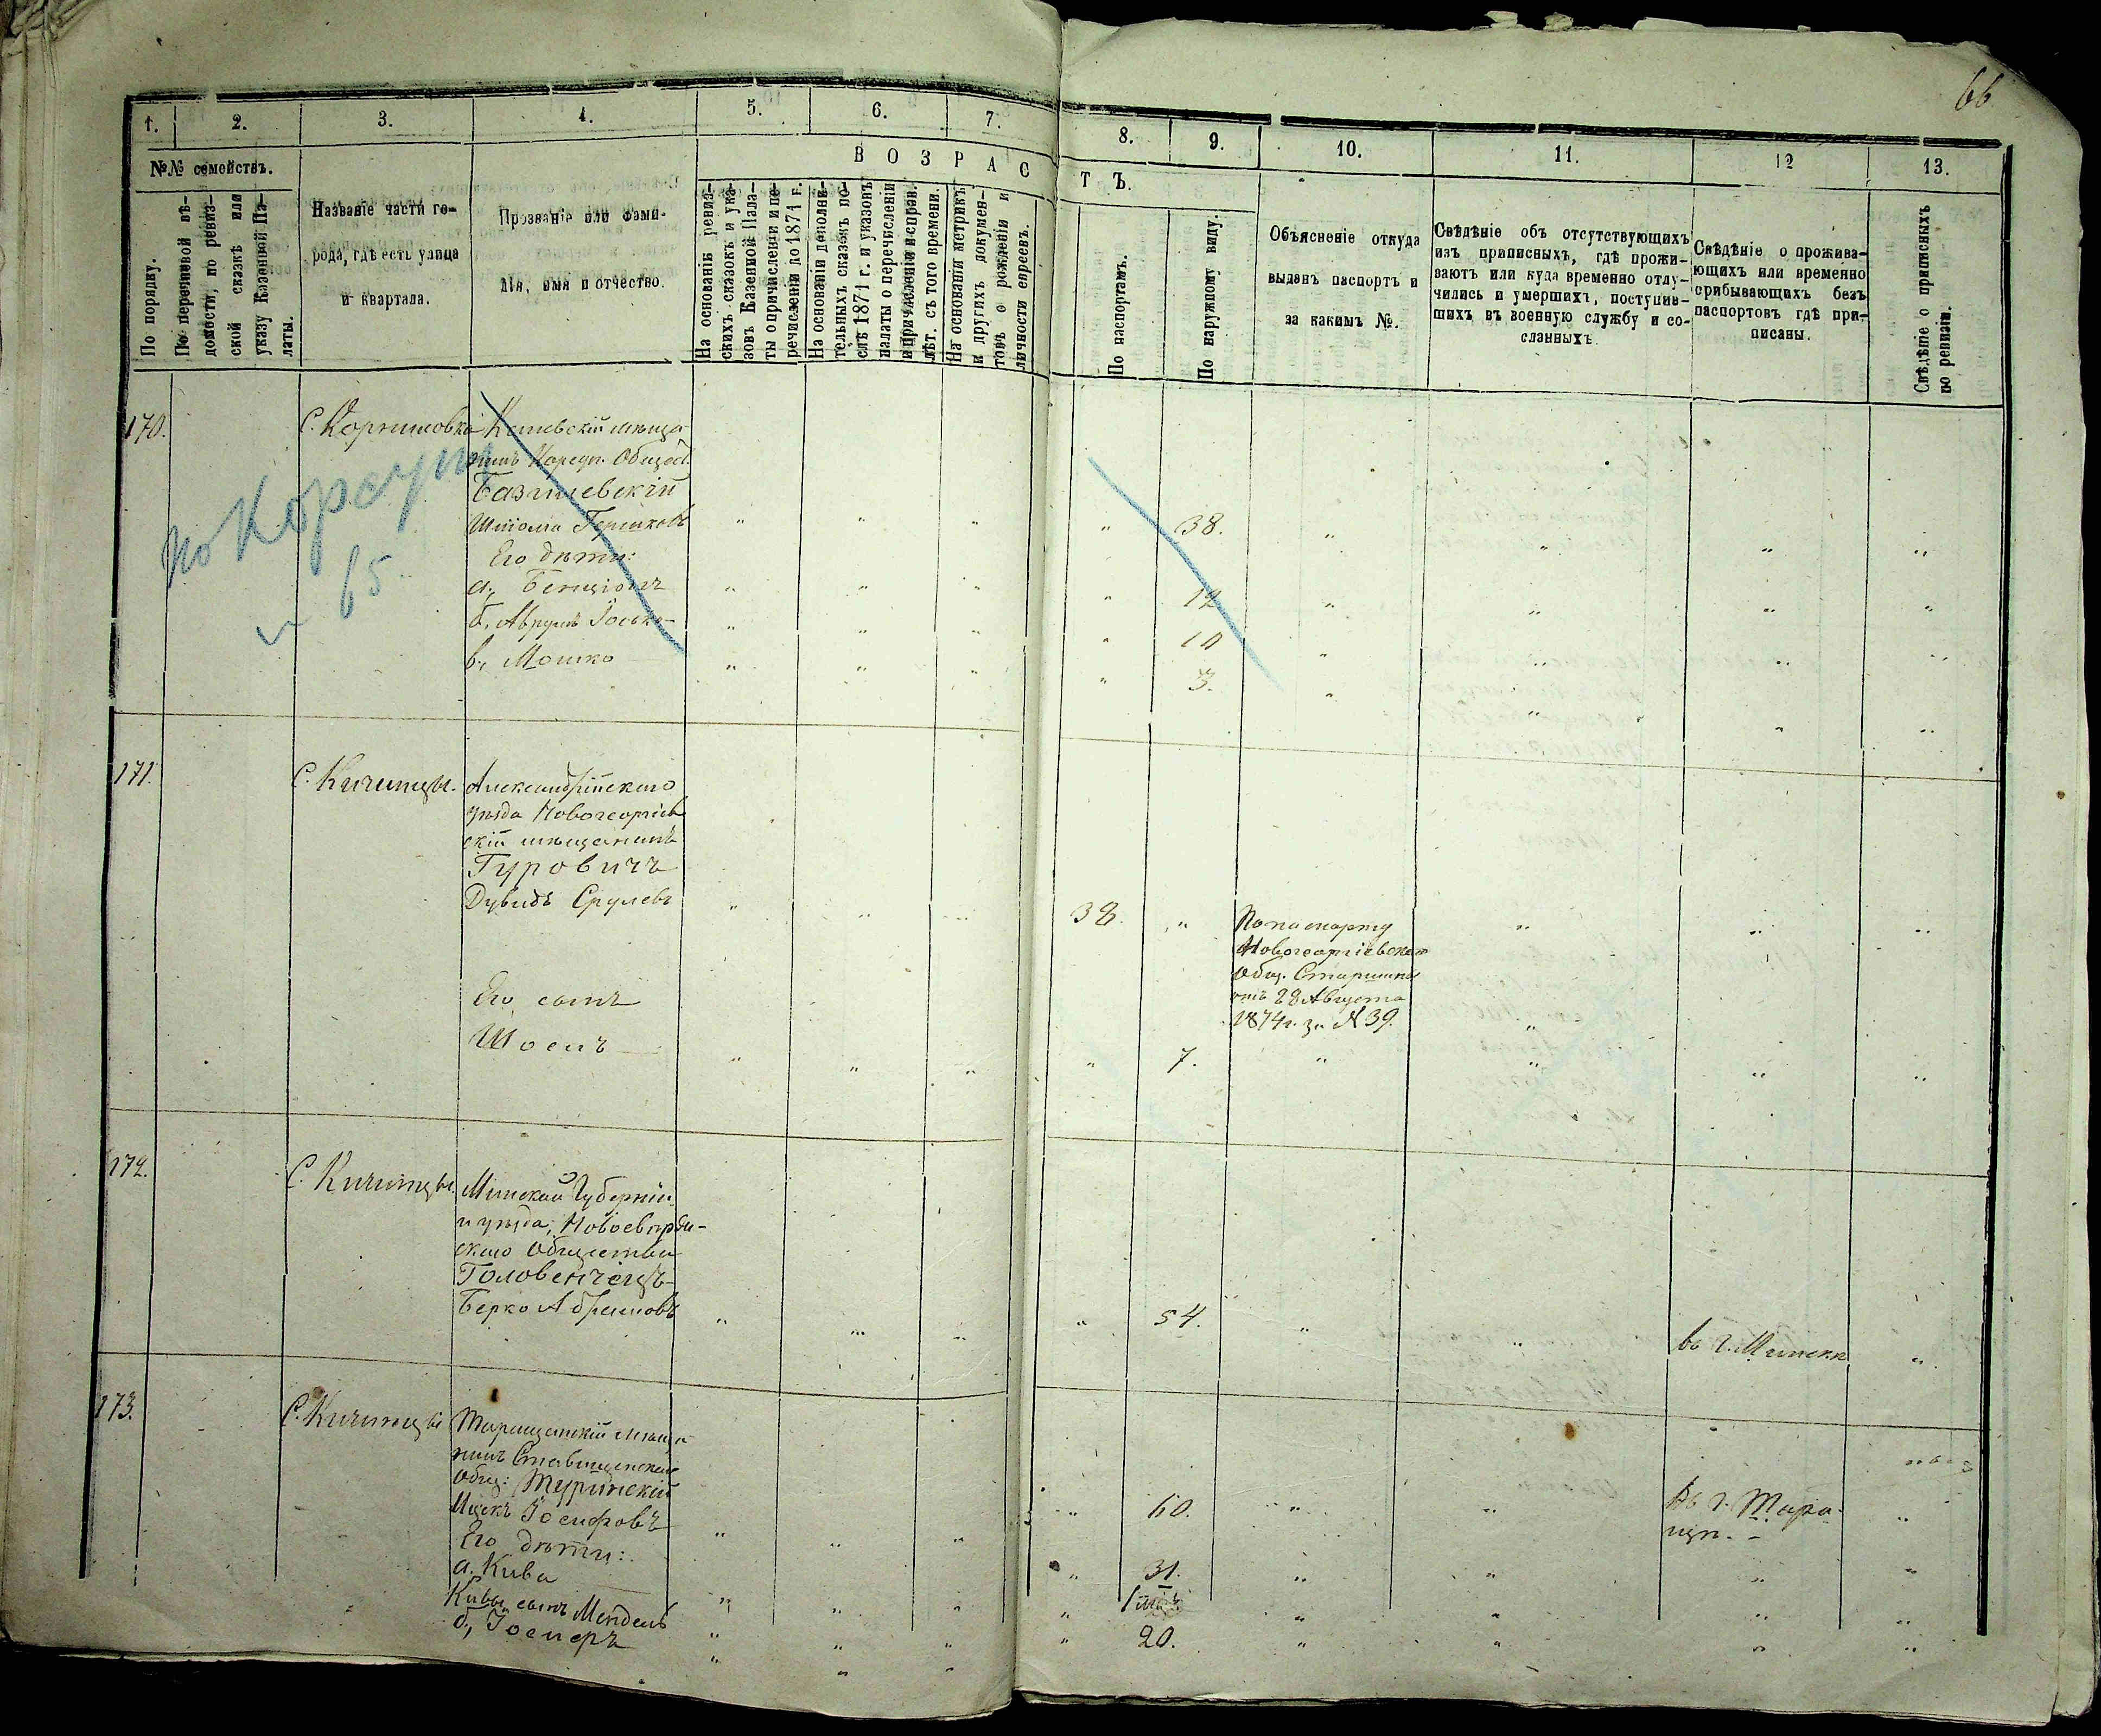 66
1.
2.
3.
4.
5.
6.
7.
8.
9.
10.
11.
12
13.
№№ семействъ.
По порядку.
По перечневой вѣ-
домости, по ревиз-
ской сказкѣ или
указу Казенной Па-
латы.
Названіе части го-
рода, гдѣ есть улица
и квартала.
Прозваніе или фами-
лія, имя и отчество.
ВОЗРАСТЪ.
На основаніи ревиз-
скихъ сказокъ и ука-
зовъ Казенной Пала-
ты о причисленіи и пе-
речисленіи до 1871 г.
На основаніи дополни-
тельныхъ сказокъ по-
слѣ 1871 г. и указовъ
палаты о перечисленіи
и причисленіи и справ.
лѣт. съ того времени.
На основаніи метрикъ
и другихъ докумен-
товъ о рожденіи и
личности евреевъ.
По паспортамъ.
По наружному виду.
Объясненіе откуда
выданъ паспортъ и
за какимъ №.
Свѣдѣніе объ отсутствующихъ
изъ приписныхъ, гдѣ прожи-
ваютъ или куда временно отлу-
чились и умершихъ, поступив-
шихъ въ военную службу и со-
сланныхъ
Свѣдѣніе о прожива-
ющихъ или временно
срибывающихъ безъ
паспортовъ гдѣ при-
писаны.
Свѣдѣніе о приписныхъ
по ревизіи.
170.
С.
мѣща-
нинъ Общест.
Шлома Гершковъ
38.
Его дѣти:
а., Бенціонъ
12
б., Аврумъ Іосько
10
в., Мошко
3.
по Корсуни
65
171.
С. Кичинцы.
Александрійскаго
уѣзда Новогеоргіев
скій мѣщанинъ
Гуровичъ
Дувидъ Срулевъ
38.
По паспорту
Новогеоргіевскаго
Общ. Старшины
отъ 28 Августа
1874 г. за № 39.
Его сынъ
7.
172.
С. Кичинцы.
Минской Губерніи
и уѣзда,
скаго Общества
Головенчецъ
Берко Абрамовъ
54.
въ г. Минскѣ
173.
С. Кичинцы
Таращанскій мѣща-
нинъ Ставищенскаго
Общ: Туринскій
Ицекъ Іосифовъ
60.
въ г. Тара-
щѣ.
Его дѣти:
а. Кива
31.
Кивы сынъ Мендель
1
б.,
20.